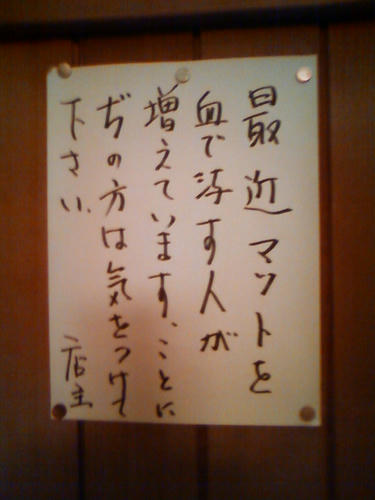 最近マットを
血で汚す人が
増えています、ことに
ぢの方は気をつけて
下さい、
店主